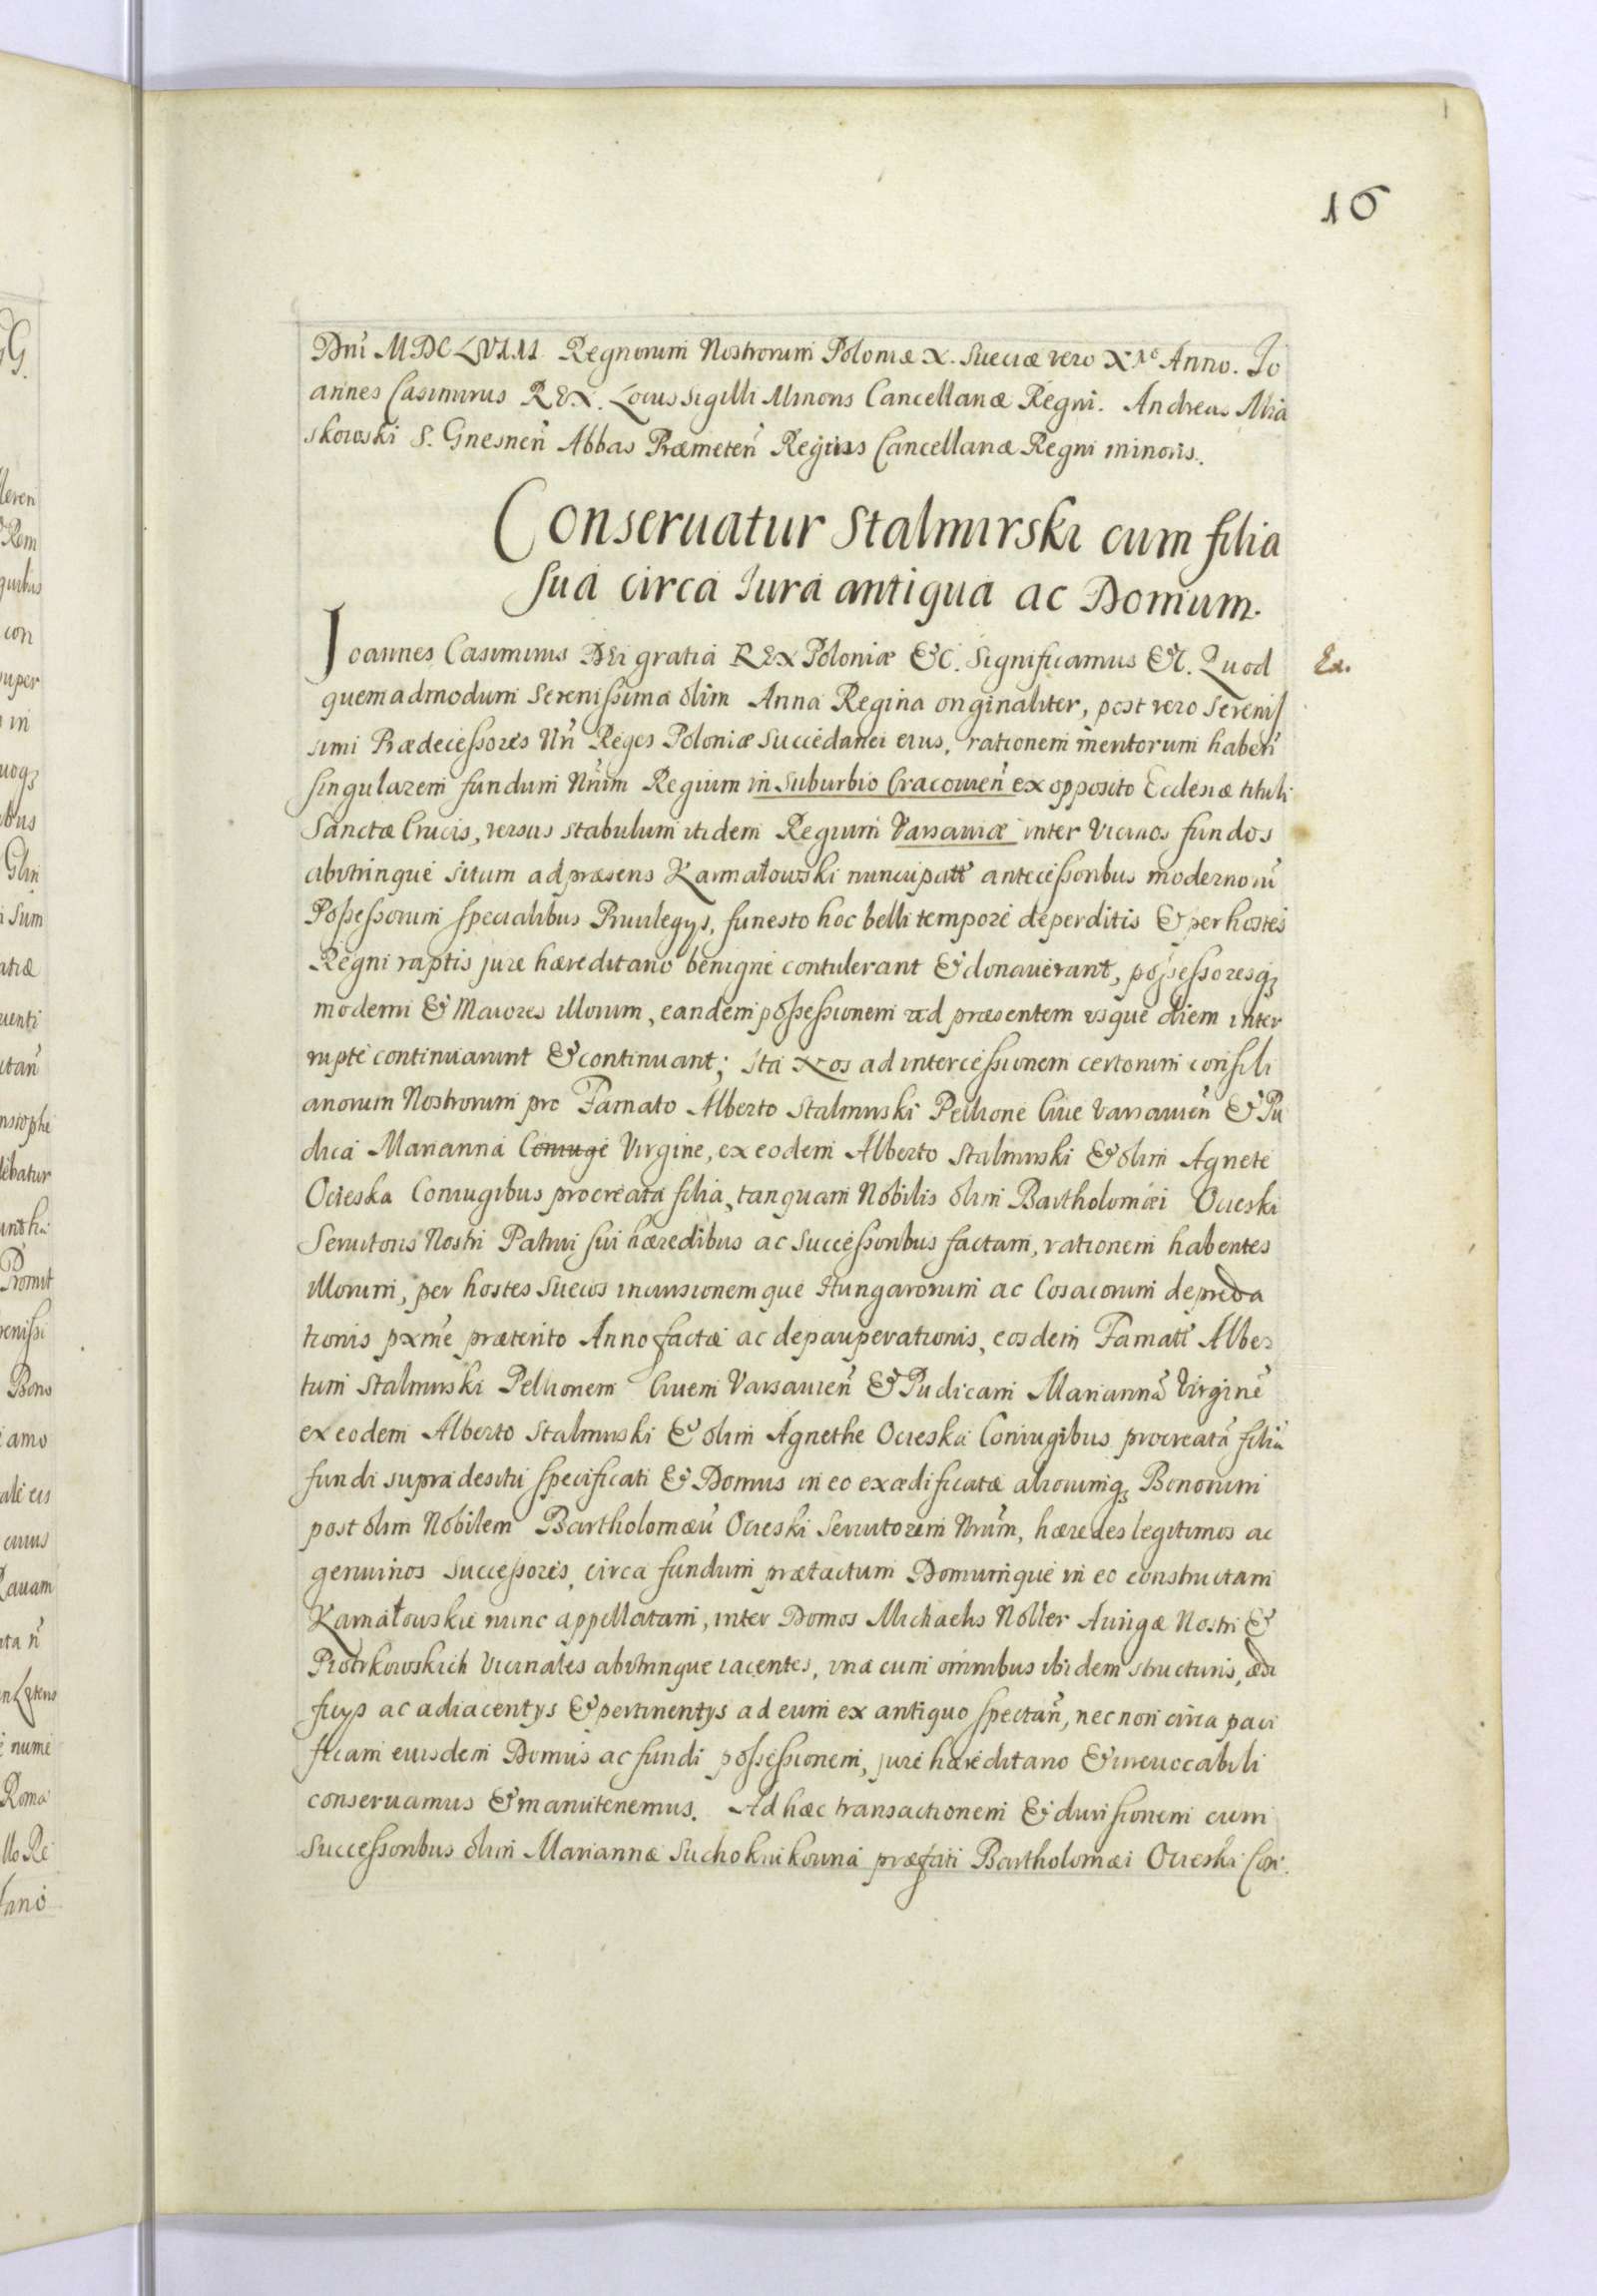 16
Dnĩ MDCLVIII Regnorum Nostrorum Poloniæ X. Sueciæ vero XIº Anno. Jo
annes Casimirus REX. Locus Sigilli Minoris Cancellariæ Regni. Andreas Mia
skowski S. Gnesnen̄ Abbas Præmeten̄ Regens Cancellariæ Regni minoris.
Conseruatur Stalmirski cum filia
sua circa Iura antiqua ac Domum.
Ioannes Casimirus DEI gratia REX Poloniæ &C. Significamus &c. Quod
quemadmodum Serenissima olim Anna Regina originaliter, post vero Serenis
simi Prædecessores Nr̄i Reges Poloniæ succedanei eius, rationem meritorum haben̄
singularem fundum Nrũm Regium in Suburbio Cracouien̄ ex opposito Ecclesiæ tituli
Sanctæ Crucis, versus stabulum itidem Regium Varsauiæ inter vicinos fundos
abvtrinque situm ad præsens Karmałowski nuncupatũ antecessoribus modernorũ
Possessorum specialibus Priuilegys, funesto hoc belli tempore deperditis & per hostes
Regni raptis jure hæreditario benigne contulerant & donauerant, possessoresq;
moderni & Maiores illorum, eandem possessionem ad præsentem vsque diem inter
rupte continuarunt & continuant; ita Nos ad intercessionem certorum consili
ariorum Nostrorum pro Famato Alberto Stalmirski Pellione Ciue Varsauien̄ & Pu
dica Marianna Coniuge Virgine, ex eodem Alberto Stalmirski & olim Agnete
Ocieska Coniugibus procreata filia, tanquam Nobilis olim Bartholomæi Ocieski
Seruitoris Nostri Patrui sui hæredibus ac successoribus factam, rationem habentes
illorum, per hostes Suecos incursionemque Hungarorum ac Cosacorum depreda
tionis pxmẽ præterito Anno factæ ac depauperationis, eosdem Famatũ Alber
tum Stalmirski Pellionem Ciuem Varsauien̄ & Pudicam Mariannã Virginẽ
ex eodem Alberto Stalmirski & olim Agnethe Ocieska Coniugibus procreatã filiã
fundi supra desitu specificati & Domus in eo exædificatæ aliorumq; Bonorum
post olim Nobilem Bartholomæũ Ocieski Seruitorem Nrũm, hæredes legitimos ac
genuinos successores, circa fundum prætactum Domumque in eo constructam
Karnałowskie nunc appellatam, inter Domos Michaelis Noller Aurigæ Nostri &
Piotrkowskich vicinales abvtrinque iacentes, vna cum omnibus ibidem structuris, ædi
ficys ac adiacentys & pertinentys ad eum ex antiquo spectan̄, nec non circa paci
ficam eiusdem Domus ac fundi possessionem, jure hæreditario & irreuocabili
conseruamus & manutenemus. Ad hæc transactionem & diuisionem cum
successoribus olim Mariannæ Suchoknikowna præfati Bartholomæi Ocieski Con: